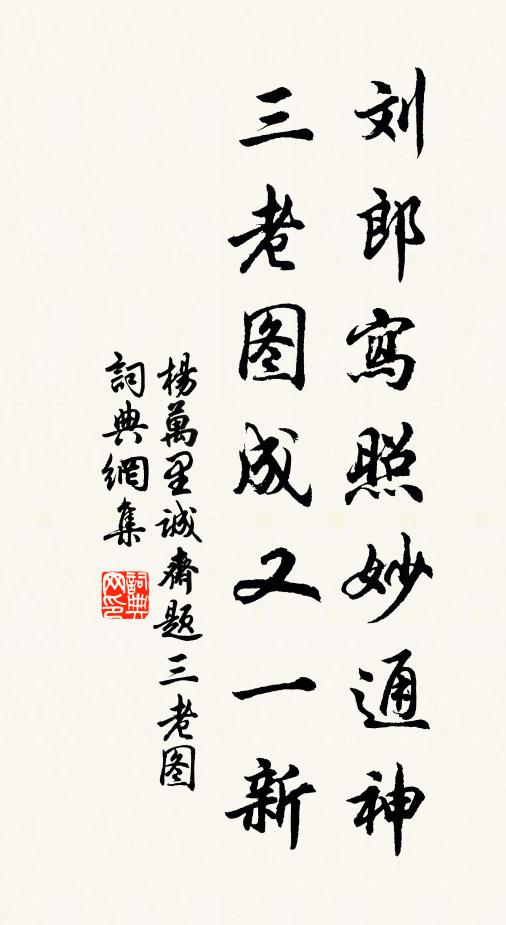 刘郎寫照妙通神
三老图成又一新
楊萬里诚齋题三老图
詞典網集
詞典网印